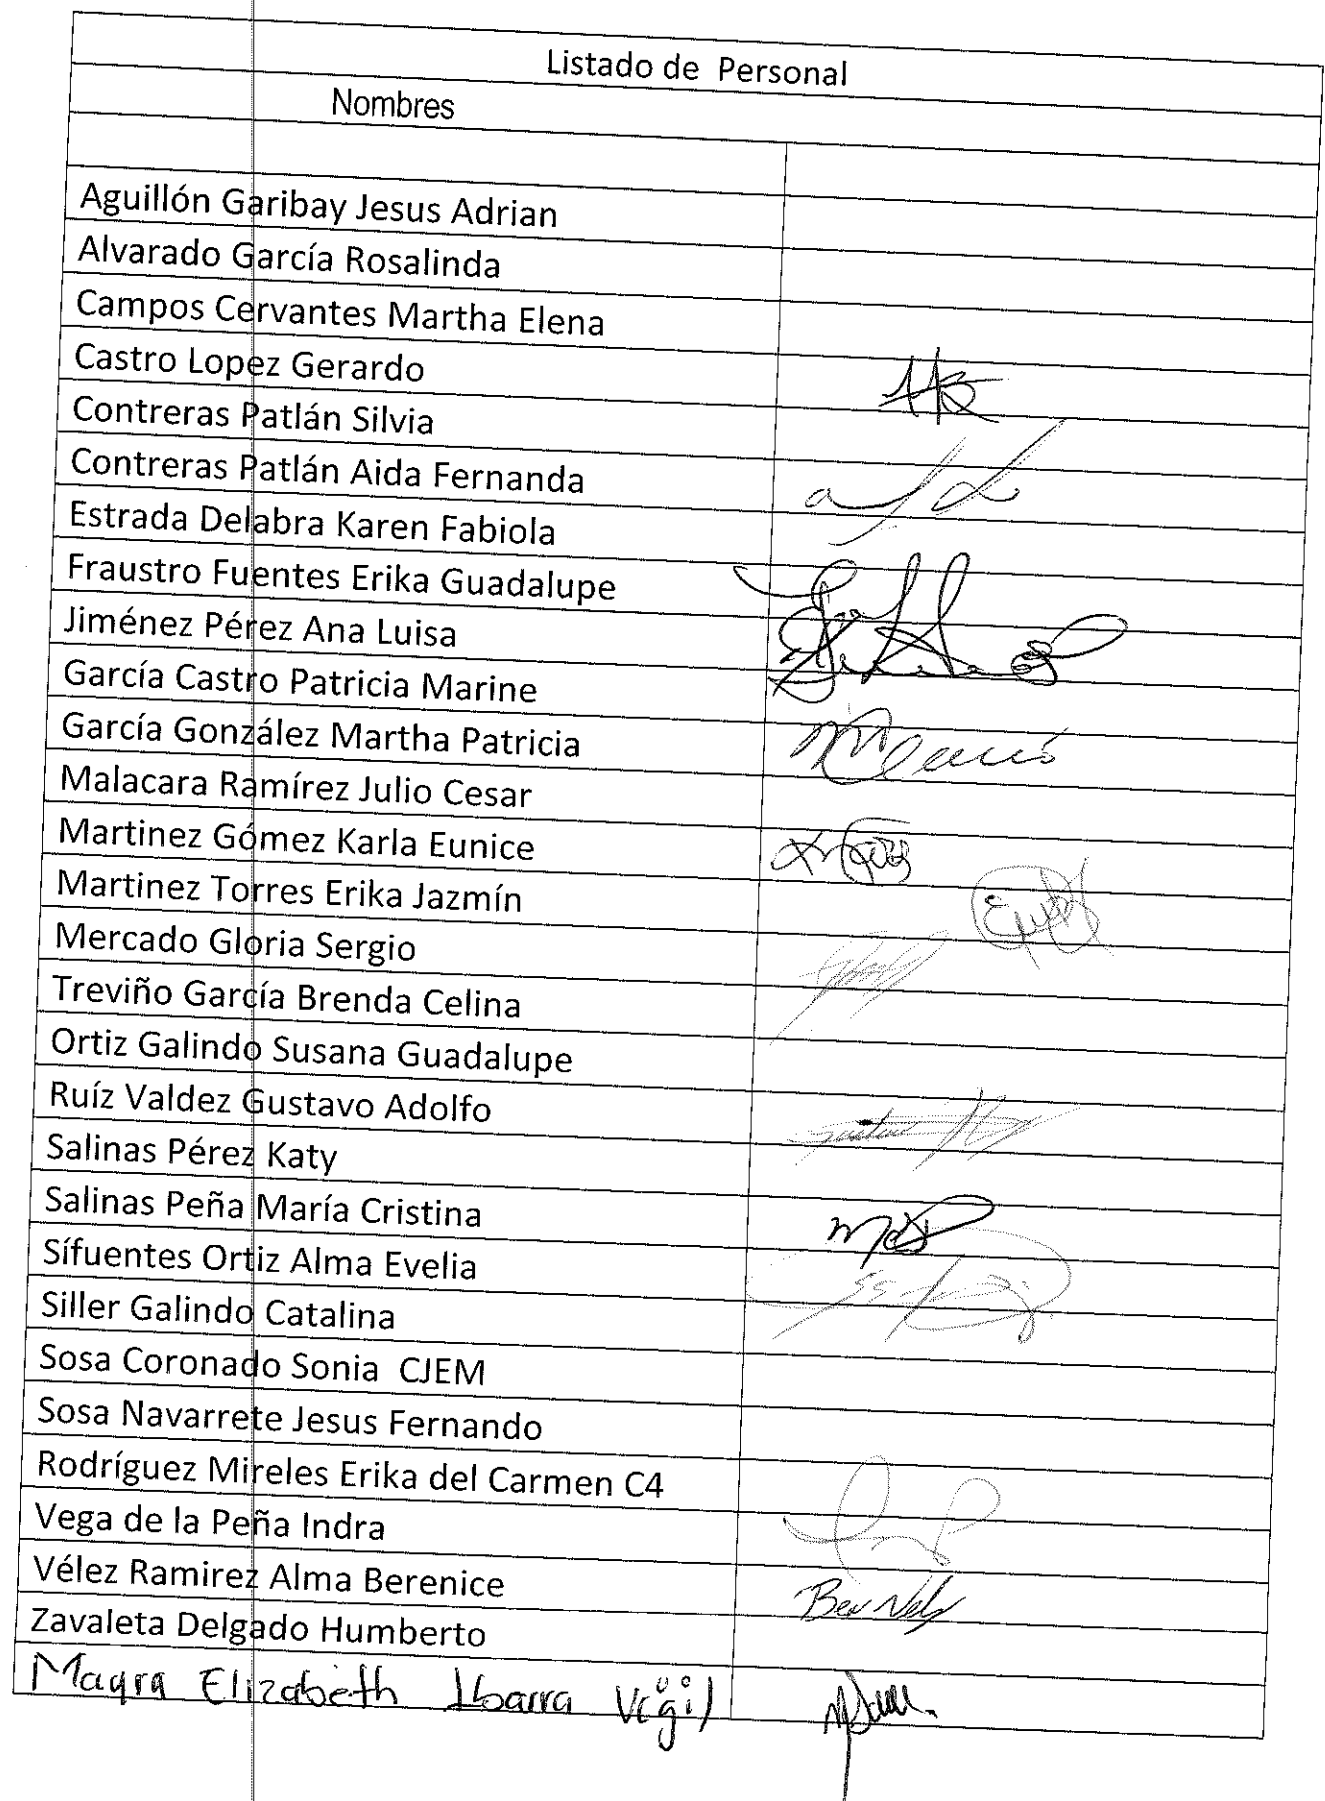 Listado de Personal
Nombres
Aguillón Garibay Jesus Adrian
Alvarado García Rosalinda
Campos Cervantes Martha Elena
Castro Lopez Gerardo
Contreras Patlán Silvia
Contreras Patlán Aida Fernanda
Estrada Delabra Karen Fabiola
Fraustro Fuentes Erika Guadalupe
Jiménez Pérez Ana Luisa
García Castro Patricia Marine
García González Martha Patricia
Malacara Ramírez Julio Cesar
Martinez Gómez Karla Eunice
Martinez Torres Erika Jazmín
Mercado Gloria Sergio
Treviño García Brenda Celina
Ortiz Galindo Susana Guadalupe
Ruíz Valdez Gustavo Adolfo
Salinas Pérez Katy
Salinas Peña María Cristina
Sífuentes Ortiz Alma Evelia
Siller Galindo Catalina
Sosa Coronado Sonia CJEM
Sosa Navarrete Jesus Fernando
Rodríguez Mireles Erika del Carmen C4
Vega de la Peña Indra
Vélez Ramirez Alma Berenice
Zavaleta Delgado Humberto
Elizabeth Ibarra Vigil